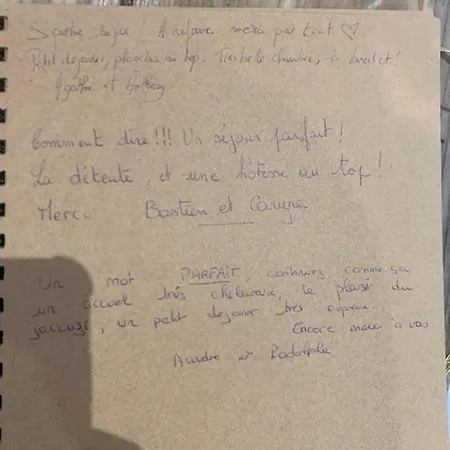 séjour A refaire merci pour tout ♡
Petit déjeuner, planche au top. Très belle chambre, à bientôt!
Agathe et
Comment dire!!! Un séjour parfait!
La détente, et une hôtesse au top!
Merci Bastien et
Un mot PARFAIT, continuez comme ça
un accueil très chaleureux, le plaisir du
jaccuzi, un petit dejeuner très copieux.
Encore merci à vous
Aurélie et Rodolphe